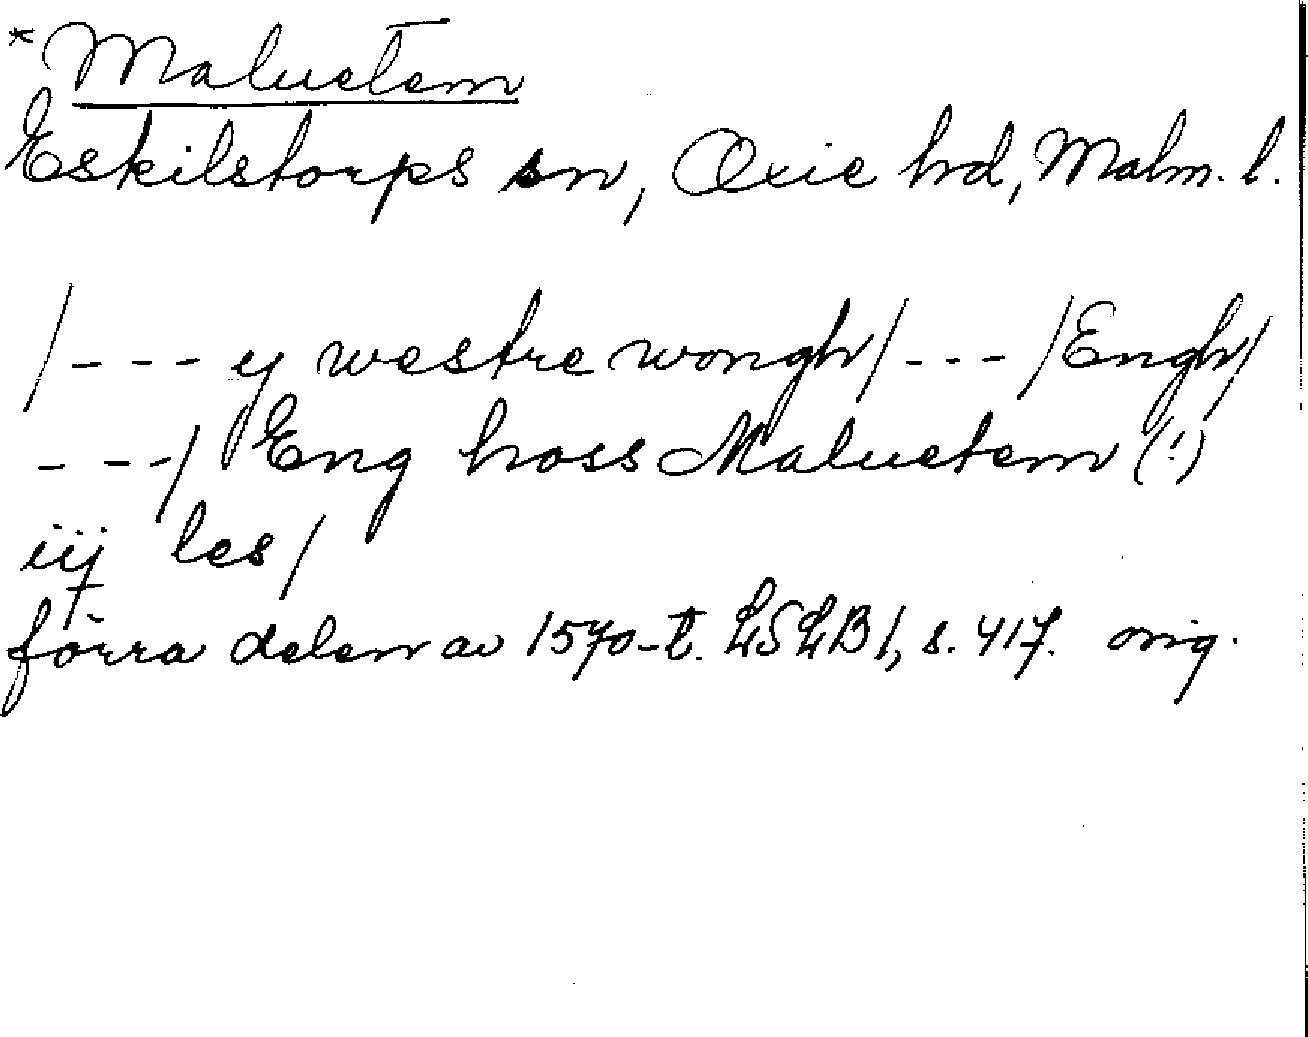 *Maluetem
Eskilstorps sn, Oxie hrd, Malm. l.
/--- ij westre wongh/ --- /Engh/
---/ Eng hoss Maluetem (!)
iij les/
förra delen av 1570-t. LSLB 1, s. 417. orig.